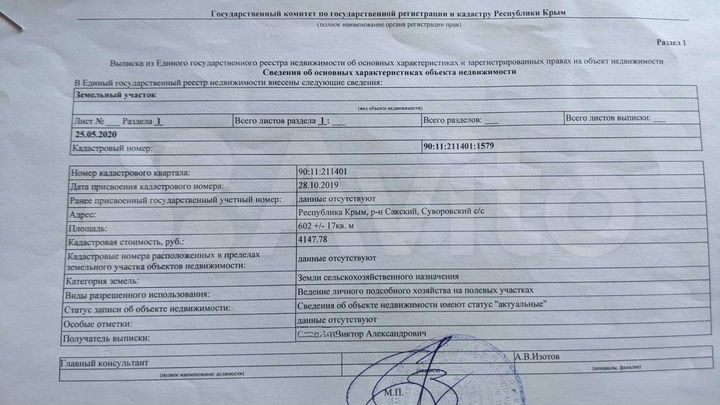 Государственный комитет по государственной регистрации и кадастру Республики Крым
(полное наименование органа регистрации прав)
Раздел 1
Выписка из Единого государственного реестра недвижимости об основных характеристиках и зарегистрированных правах на объект недвижимости
Сведения об основных характеристиках объекта недвижимости
В Единый государственный реестр недвижимости внесены следующие сведения:
Земельный участок
(вид объекта недвижимости)
Лист № ___ Раздела 1 Всего листов раздела 1 : ___ Всего разделов: ___ Всего листов выписки: ___
25.05.2020
Кадастровый номер: 90:11:211401:1579
Номер кадастрового квартала: 90:11:211401
Дата присвоения кадастрового номера: 28.10.2019
Ранее присвоенный государственный учетный номер: данные отсутствуют
Адрес: Республика Крым, р-н Сакский, Суворовский с/с
Площадь: 602 +/- 17кв. м
Кадастровая стоимость, руб.: 4147.78
Кадастровые номера расположенных в пределах
земельного участка объектов недвижимости: данные отсутствуют
Категория земель: Земли сельскохозяйственного назначения
Виды разрешенного использования: Ведение личного подсобного хозяйства на полевых участках
Статус записи об объекте недвижимости: Сведения об объекте недвижимости имеют статус "актуальные"
Особые отметки: данные отсутствуют
Получатель выписки: Виктор Александрович
Главный консультант А.В.Изотов
(полное наименование должности) (подпись) (инициалы, фамилия)
М.П.
Avito